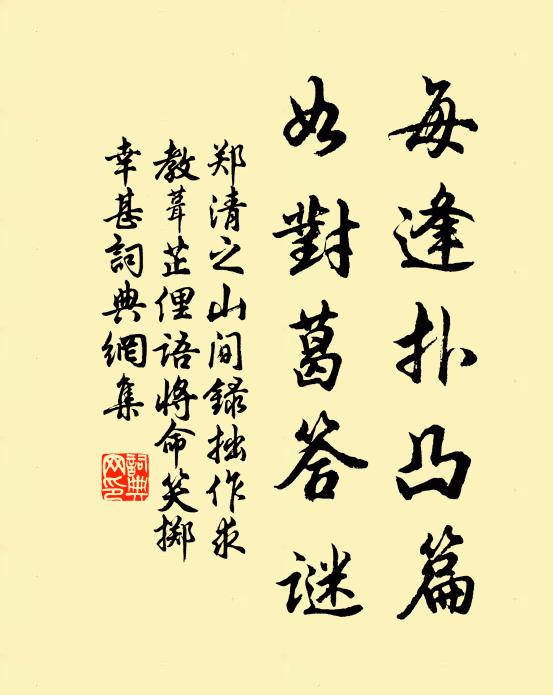 每逢扑凸篇
如對葛答谜
郑清之山间録拙作求
教葺芷俚语将命笑掷
幸甚詞典網集
詞典网印